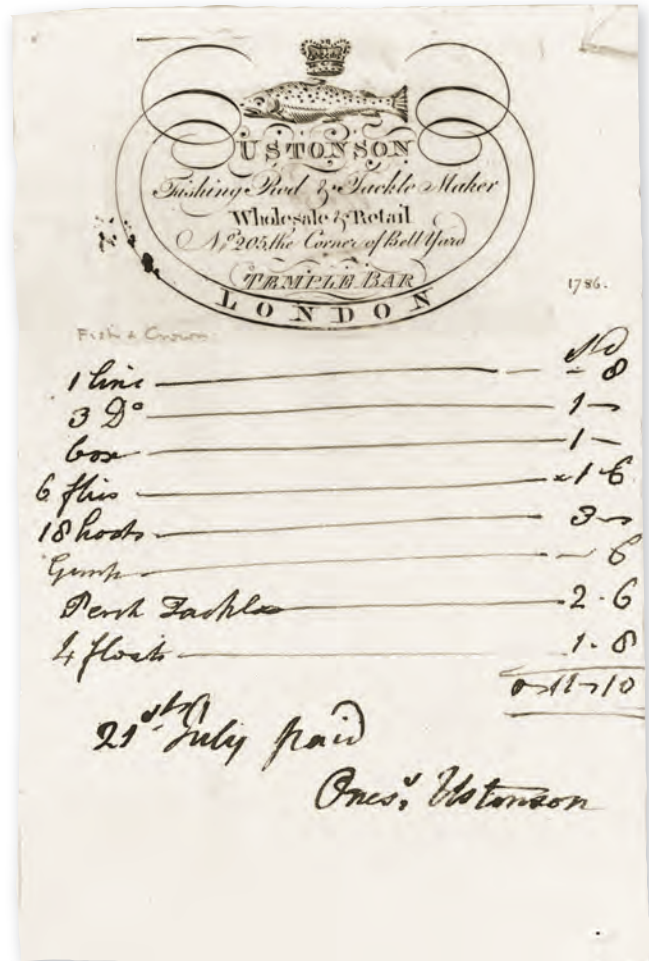 USTONSON
Fishing Rod & Tackle Maker
Wholesale & Retail
No. 205, the Corner of Bell Yard
TEMPLE BAR
LONDON
1786.
Fish & Crown
s d
1 line — - 8
3 Do — 1 -
box — 1 -
6 flies — 1 - 6
18 hooks — 3 -
Gimp — - 6
Perch Tackle — 2 - 6
4 floats — 1 - 8
0 - 11 - 10
21st July paid
Ones. Ustonson